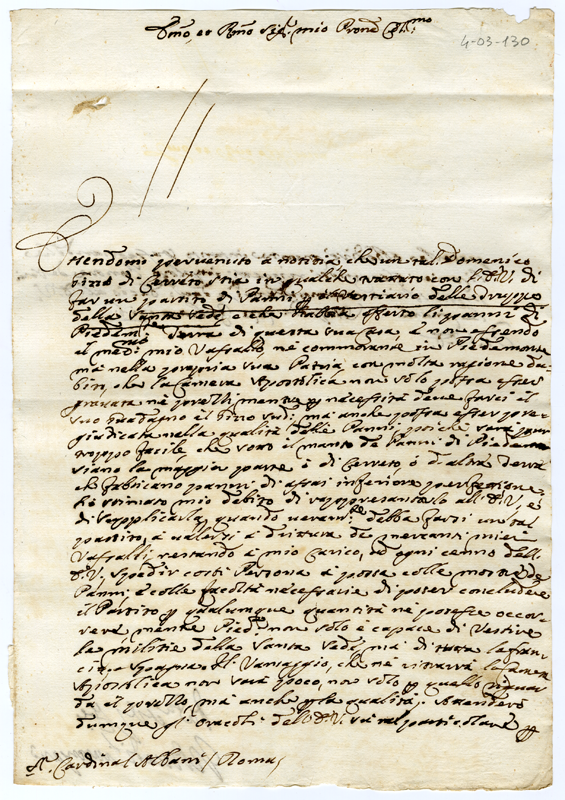 Em̃o, et Rm̃o Sig.r mio Pron̄e Col.mo
4-03-130
Essendomi pervenuto à notitia che un tal Domenico
Rizzi di Cerreto stia in qualche trattato con l'E.V. di
far un partito di Panni per vestiario delle Truppe
della Santa Sede e che habbia offerto li panni di
Piedim.te Terra di questa sua Casa, è non essendo
il med.mo mio Vassallo, ne commorante in Piedemonte
mà nella propria sua Patria con molta ragione du-
bito, che la Camera Apostolica non solo possa esser
gravata nè prezzi, mentre per necessità deve farci il
suo guadagno il Rizzo sud.o, mà anche possa esser pre-
giudicata nella qualità delle Panni, poiche sarà pur
troppo facile, che sotto il manto de Panni di Piedem.te
siano la maggior parte ò di Cerreto, ò d'altra Terra
che fabricano panni di assai inferiore perfettione.
hò stimato mio debito di rappresentarlo all'E.V., e
di supplicarla, quando veram.te debba farsi un tal
partito, à valersi à drittura de mercanti miei
Vassalli, restando à mio carico, ad ogni cenno dell'
E.V., spedir costi Persona à posta colle mostre de
Panni, è colle facoltà necessarie di poter concludere
il Partito per qualunque quantità ne potesse occor-
rere, mentre Pied.te non solo è capace di vestire
le militie della Santa Sede, mà di tutta la Fran-
cia e Spagna. Il vantaggio, che ne ritrarrà la Camera
Apostolica non sarà poco, non solo per quello riguar-
da il prezzo, mà anche per la qualità; Attenderò
dunque gl'oracoli dell'E.V. sù tal particolare per
S.r Cardinal Albani / Roma